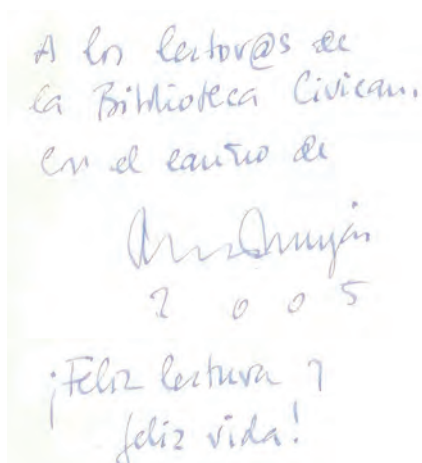 A los lector@s de
la Biblioteca Civican.
Con el cariño de
2005
¡Feliz lectura y
feliz vida!